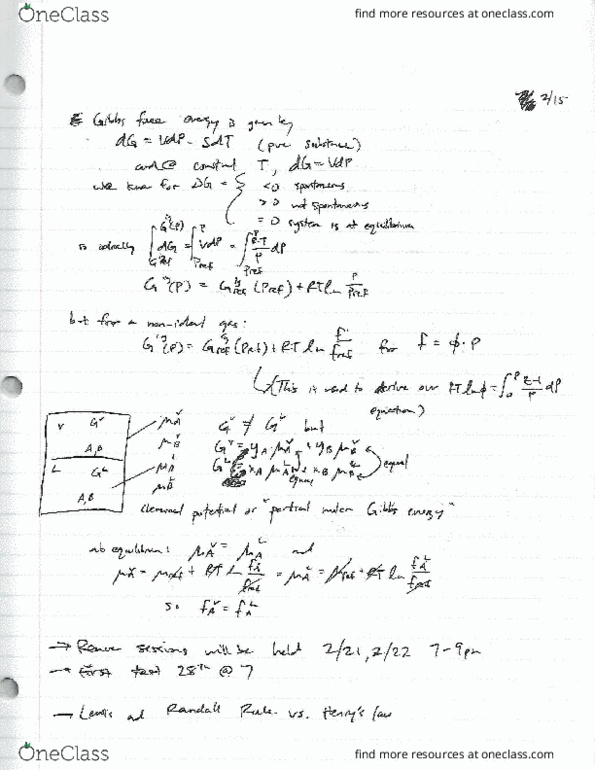 OneClass
find more resources at oneclass.com
2/15
Gibbs free energy is given by
dG = VdP - SdT (pure substance)
and @ constant T, dG = VdP
we know for ΔG = { <0 spontaneous
>0 not spontaneous
=0 system is at equilibrium
so ideally ∫dG = ∫VdP = ∫ RT/P dP
G^ig(P) = G^ig_ref (Pref) + RT ln P/Pref
but for a non-ideal gas:
(P) = (Pref) + RT ln f/fref for f = φ·P
(This is used to derive our RT ln φ = ∫ Z-1/P dP
equation)
V G^V μ_A^V G^V ≠ G^L but
A,B μ_B^V G^V = y_A μ_A^V + y_B μ_B^V
L G^L μ_A^L G^L = x_A μ_A^L + x_B μ_B^L equal
equal
A,B μ_B^L
chemical potential or "partial molar Gibbs energy"
equilibrium: μ_A^V = μ_A^L and
μ_A^V = μref + RT ln f_A^V/fref = μ_A^L = μref + RT ln f_A^L/fref
so f_A^V = f_A^L
→ sessions will be held 2/21, 2/22 7-9pm
→ first test 28th @ 7
→ Lewis and Randall Rule vs. Henry's law
OneClass
find more resources at oneclass.com